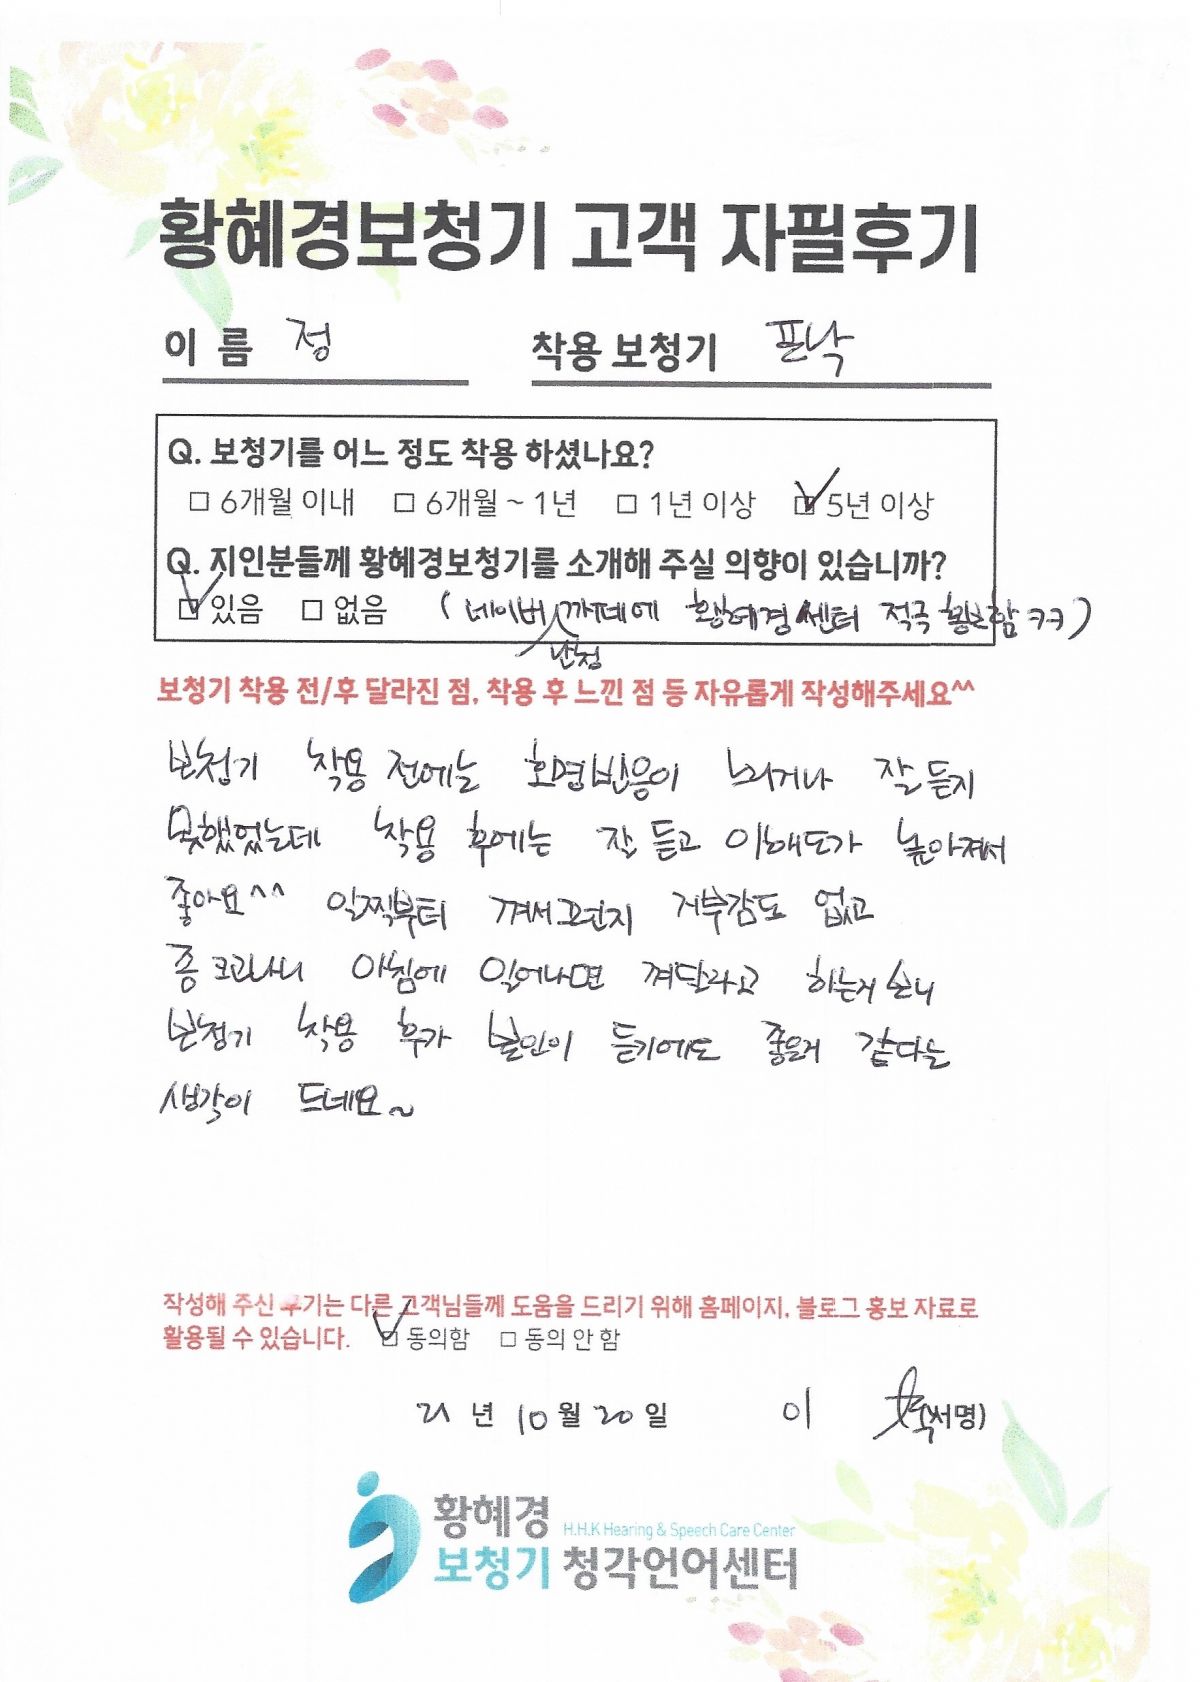 황혜경보청기 고객 자필후기
이 름 정 착용 보청기 포낙
Q. 보청기를 어느 정도 착용 하셨나요?
□ 6개월 이내 □ 6개월 ~ 1년 □ 1년 이상 ☑ 5년 이상
Q. 지인분들께 황혜경보청기를 소개해 주실 의향이 있습니까?
☑ 있음 □ 없음 (네이버 난청 까페에 황혜경 센터 적극 활동함 ㅋㅋ)
보청기 착용 전/후 달라진 점, 착용 후 느낀 점 등 자유롭게 작성해주세요^^
보청기 착용 전에는 호명반응이 느리거나 잘 듣지
못했었는데 착용 후에는 잘 듣고 이해도가 높아져서
좋아요^^ 일찍부터 껴서그런지 거부감도 없고
좀 크고나니 아침에 일어나면 껴달라고 하는거 보니
보청기 착용 후가 본인이 듣기에도 좋은거 같다는
생각이 드네요~
작성해 주신 후기는 다른 고객님들께 도움을 드리기 위해 홈페이지, 블로그 홍보 자료로
활용될 수 있습니다. ☑ 동의함 □ 동의 안 함
21 년 10 월 20 일 이 (서명)
황혜경
H.H.K Hearing & Speech Care Center
보청기 청각언어센터